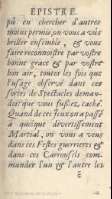 EPISTRE.
pû en chercher d'autres
moins permis, on vous a vüe
briller ensemble, & vous
faire reconnoistre par vostre
bonne grace & par vostre
bon air, toutes les fois que
l'usage observé dans ces
sortes de Spectacles deman-
doit que vous fussiez, caché.
Quand de ces jeux on a passé
à quelque divertissement
Martial, on vous a veu
dans ces Festes guerrieres &
dans ces Carrousels com-
mander l'un & l'autre les